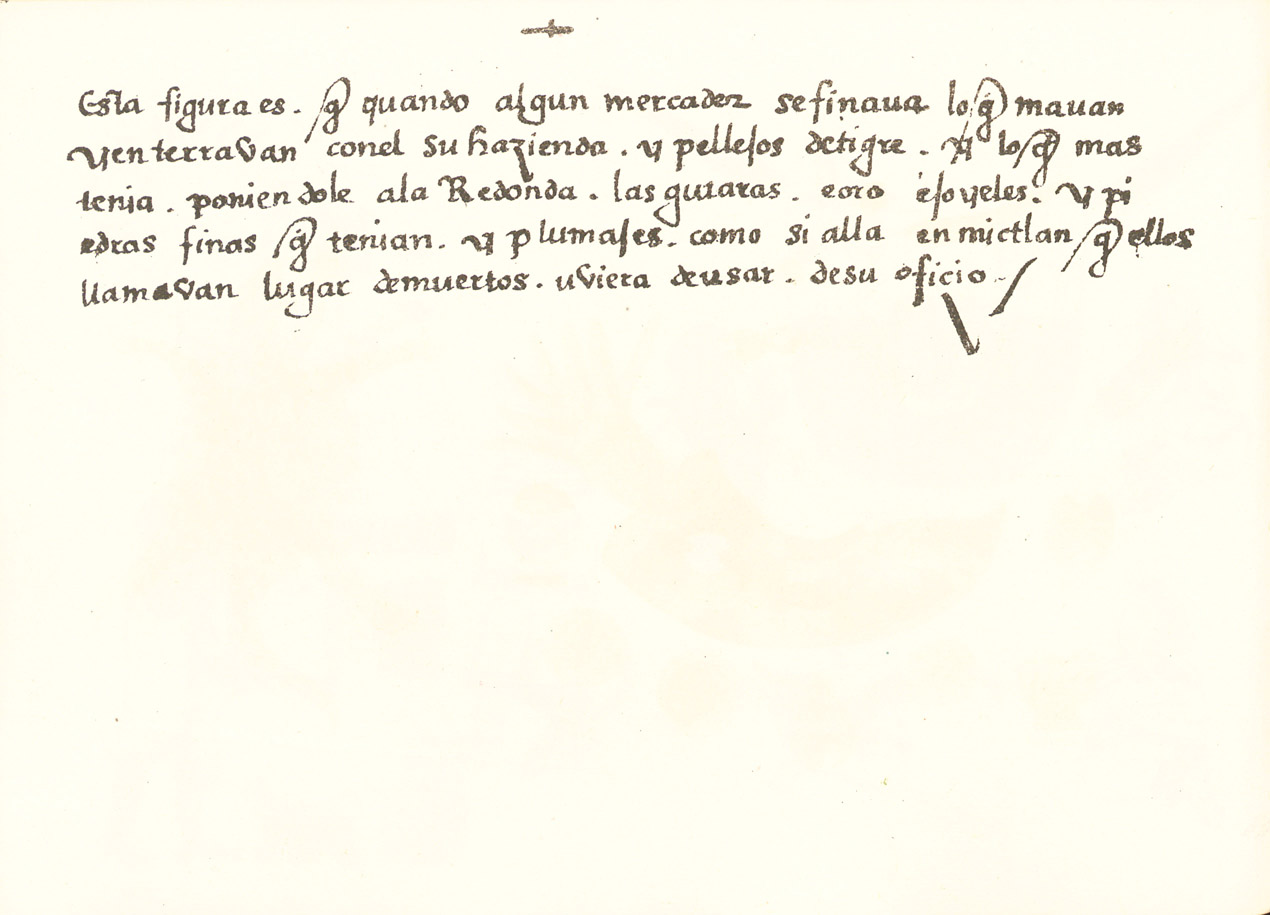 Esta figura es. q̃ quando algun mercader se finaua lo q̃mauan
y enterravan con el su hazienda. y pellejos de tigre. y lo q̃ mas
tenia. poniendole a la Redonda. las gutaras. e oro e joyeles. y pi
edras finas q̃ tenian. y plumajes. como si alla en mictlan q̃ ellos
llamavan lugar de muertos. uviera de usar. de su oficio